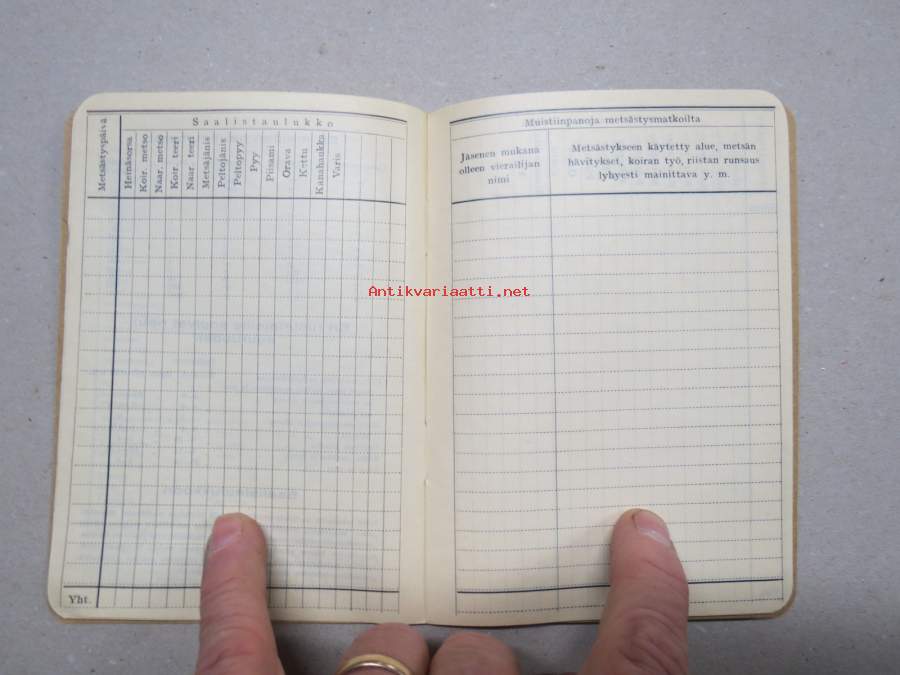 Saalistaulukko
Metsästyspäivä
Heinäsorsa
Koir. metso
Naar. metso
Koir. teeri
Naar. teeri
Metsäjänis
Peltojänis
Peltopyy
Pyy
Piisami
Orava
Kettu
Kanahaukka
Varis
Yht.
Muistiinpanoja metsästysmatkoilta
Jäsenen mukana
olleen vierailijan
nimi
Metsästykseen käytetty alue, metsän
hävitykset, koiran työ, riistan runsaus
lyhyesti mainittava y. m.
Antikvariaatti.net